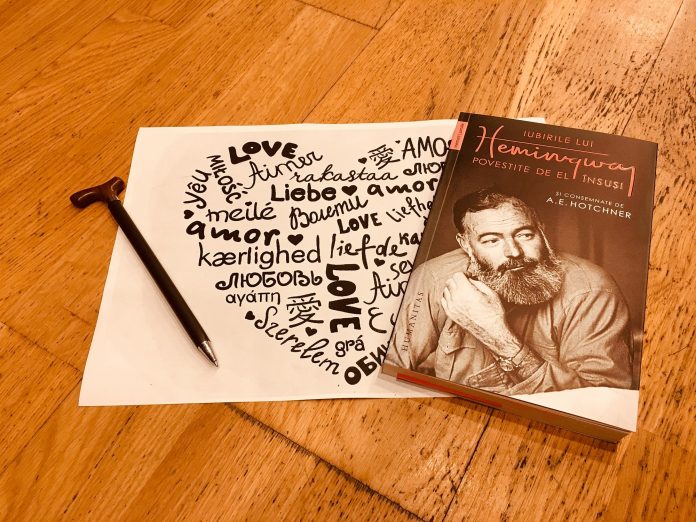 LOVE
Aimer
rakastaa
愛
AMOS
Yêu
Miłość
Liebe
amor
ЛЮБО
meilė
Волети
LOVE
liefhe
amor
kærlighed
liefde
ka
ЛЮБОВЬ
LOVE
Aime
αγάπη
愛
Szerelem
grá
ОБИЧ
IUBIRILE LUI
Hemingway
POVESTITE DE EL ÎNSUȘI
ȘI CONSEMNATE DE
A.E. HOTCHNER
HUMANITAS